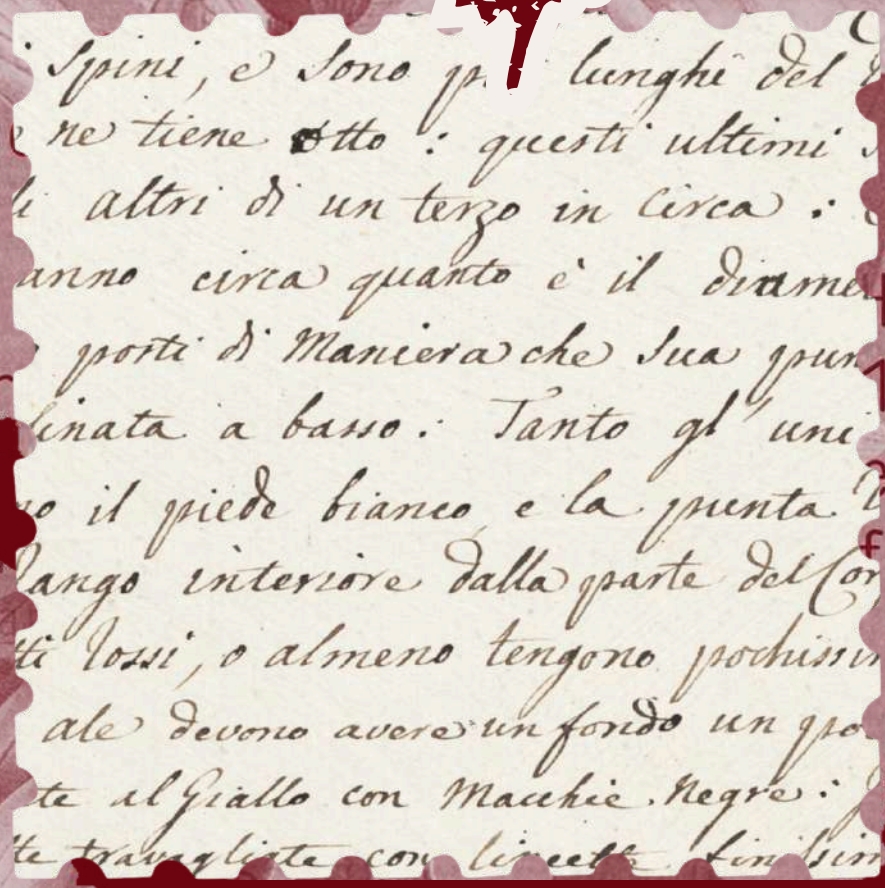 spini, e sono più lunghi del
ne tiene otto : questi ultimi
altri di un terzo in circa :
anno circa quanto è il diame
posti di Maniera che sua pun
linata a basso. Tanto gl' uni
no il piede bianco, e la punta
lango interiore dalla parte del Cor
tti rossi, o almeno tengono pochissim
ale devono avere un fondo un po
te al Giallo con Macchie Negre :
te travagliate con lineette finissim